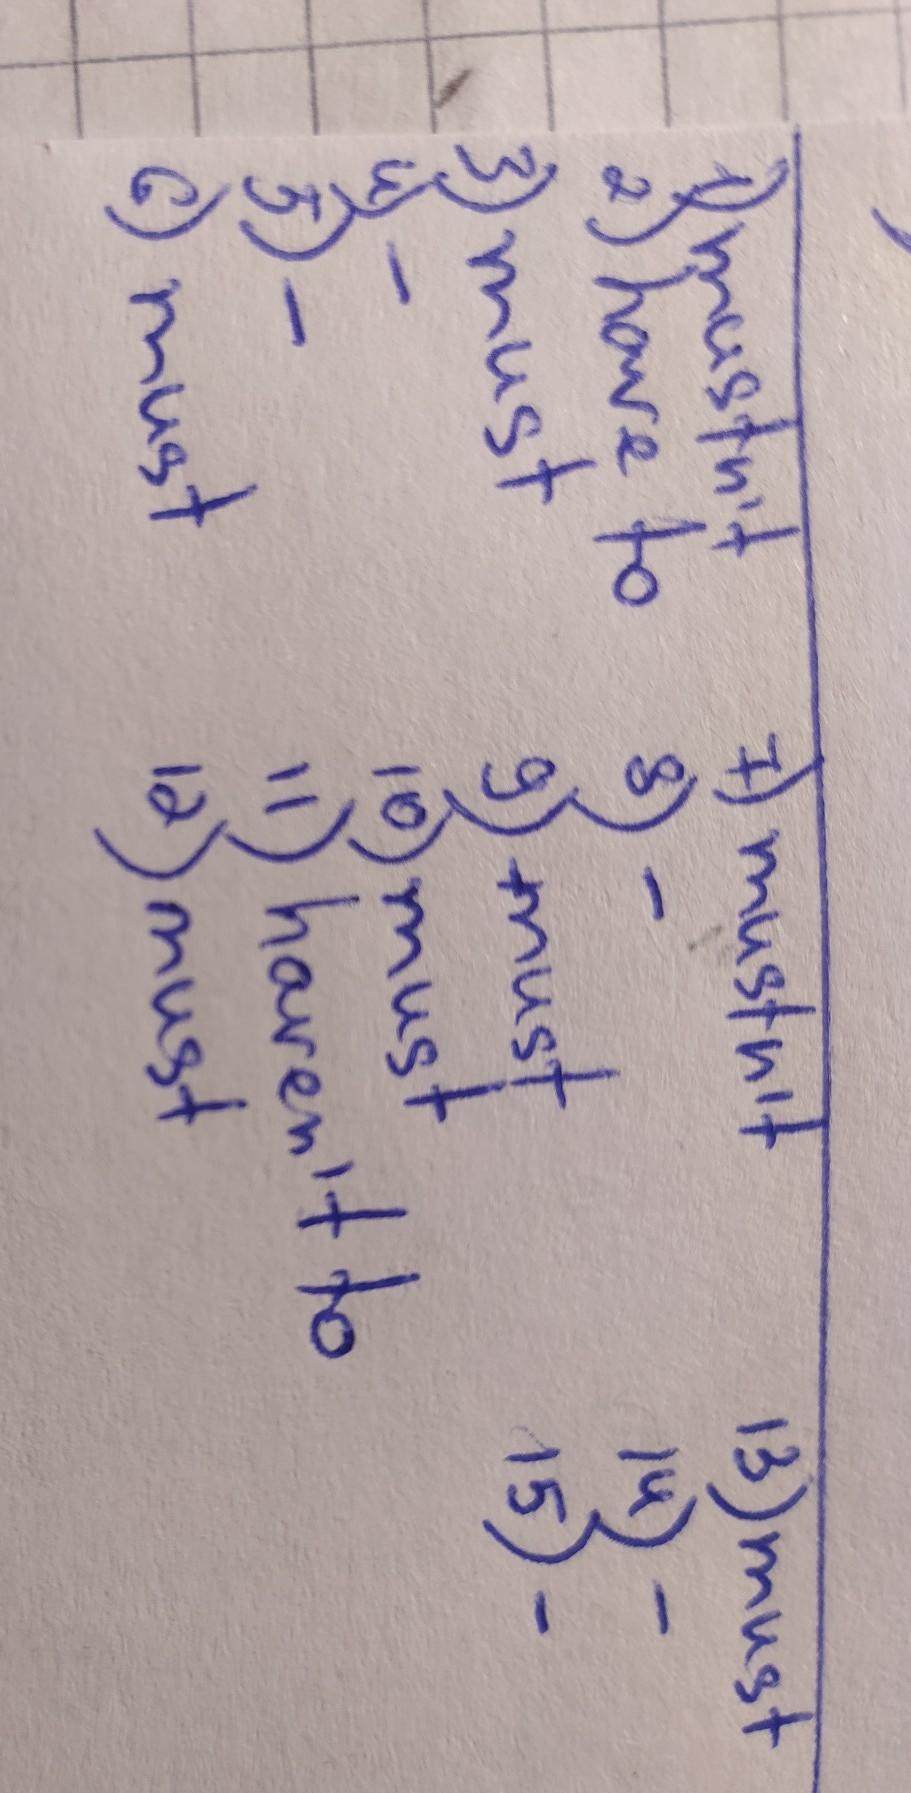 1) mustn't
2) have to
3) must
4) -
5) -
6) must
7) mustn't
8) -
9) must
10) must
11) haven't to
12) must
13) must
14) -
15) -